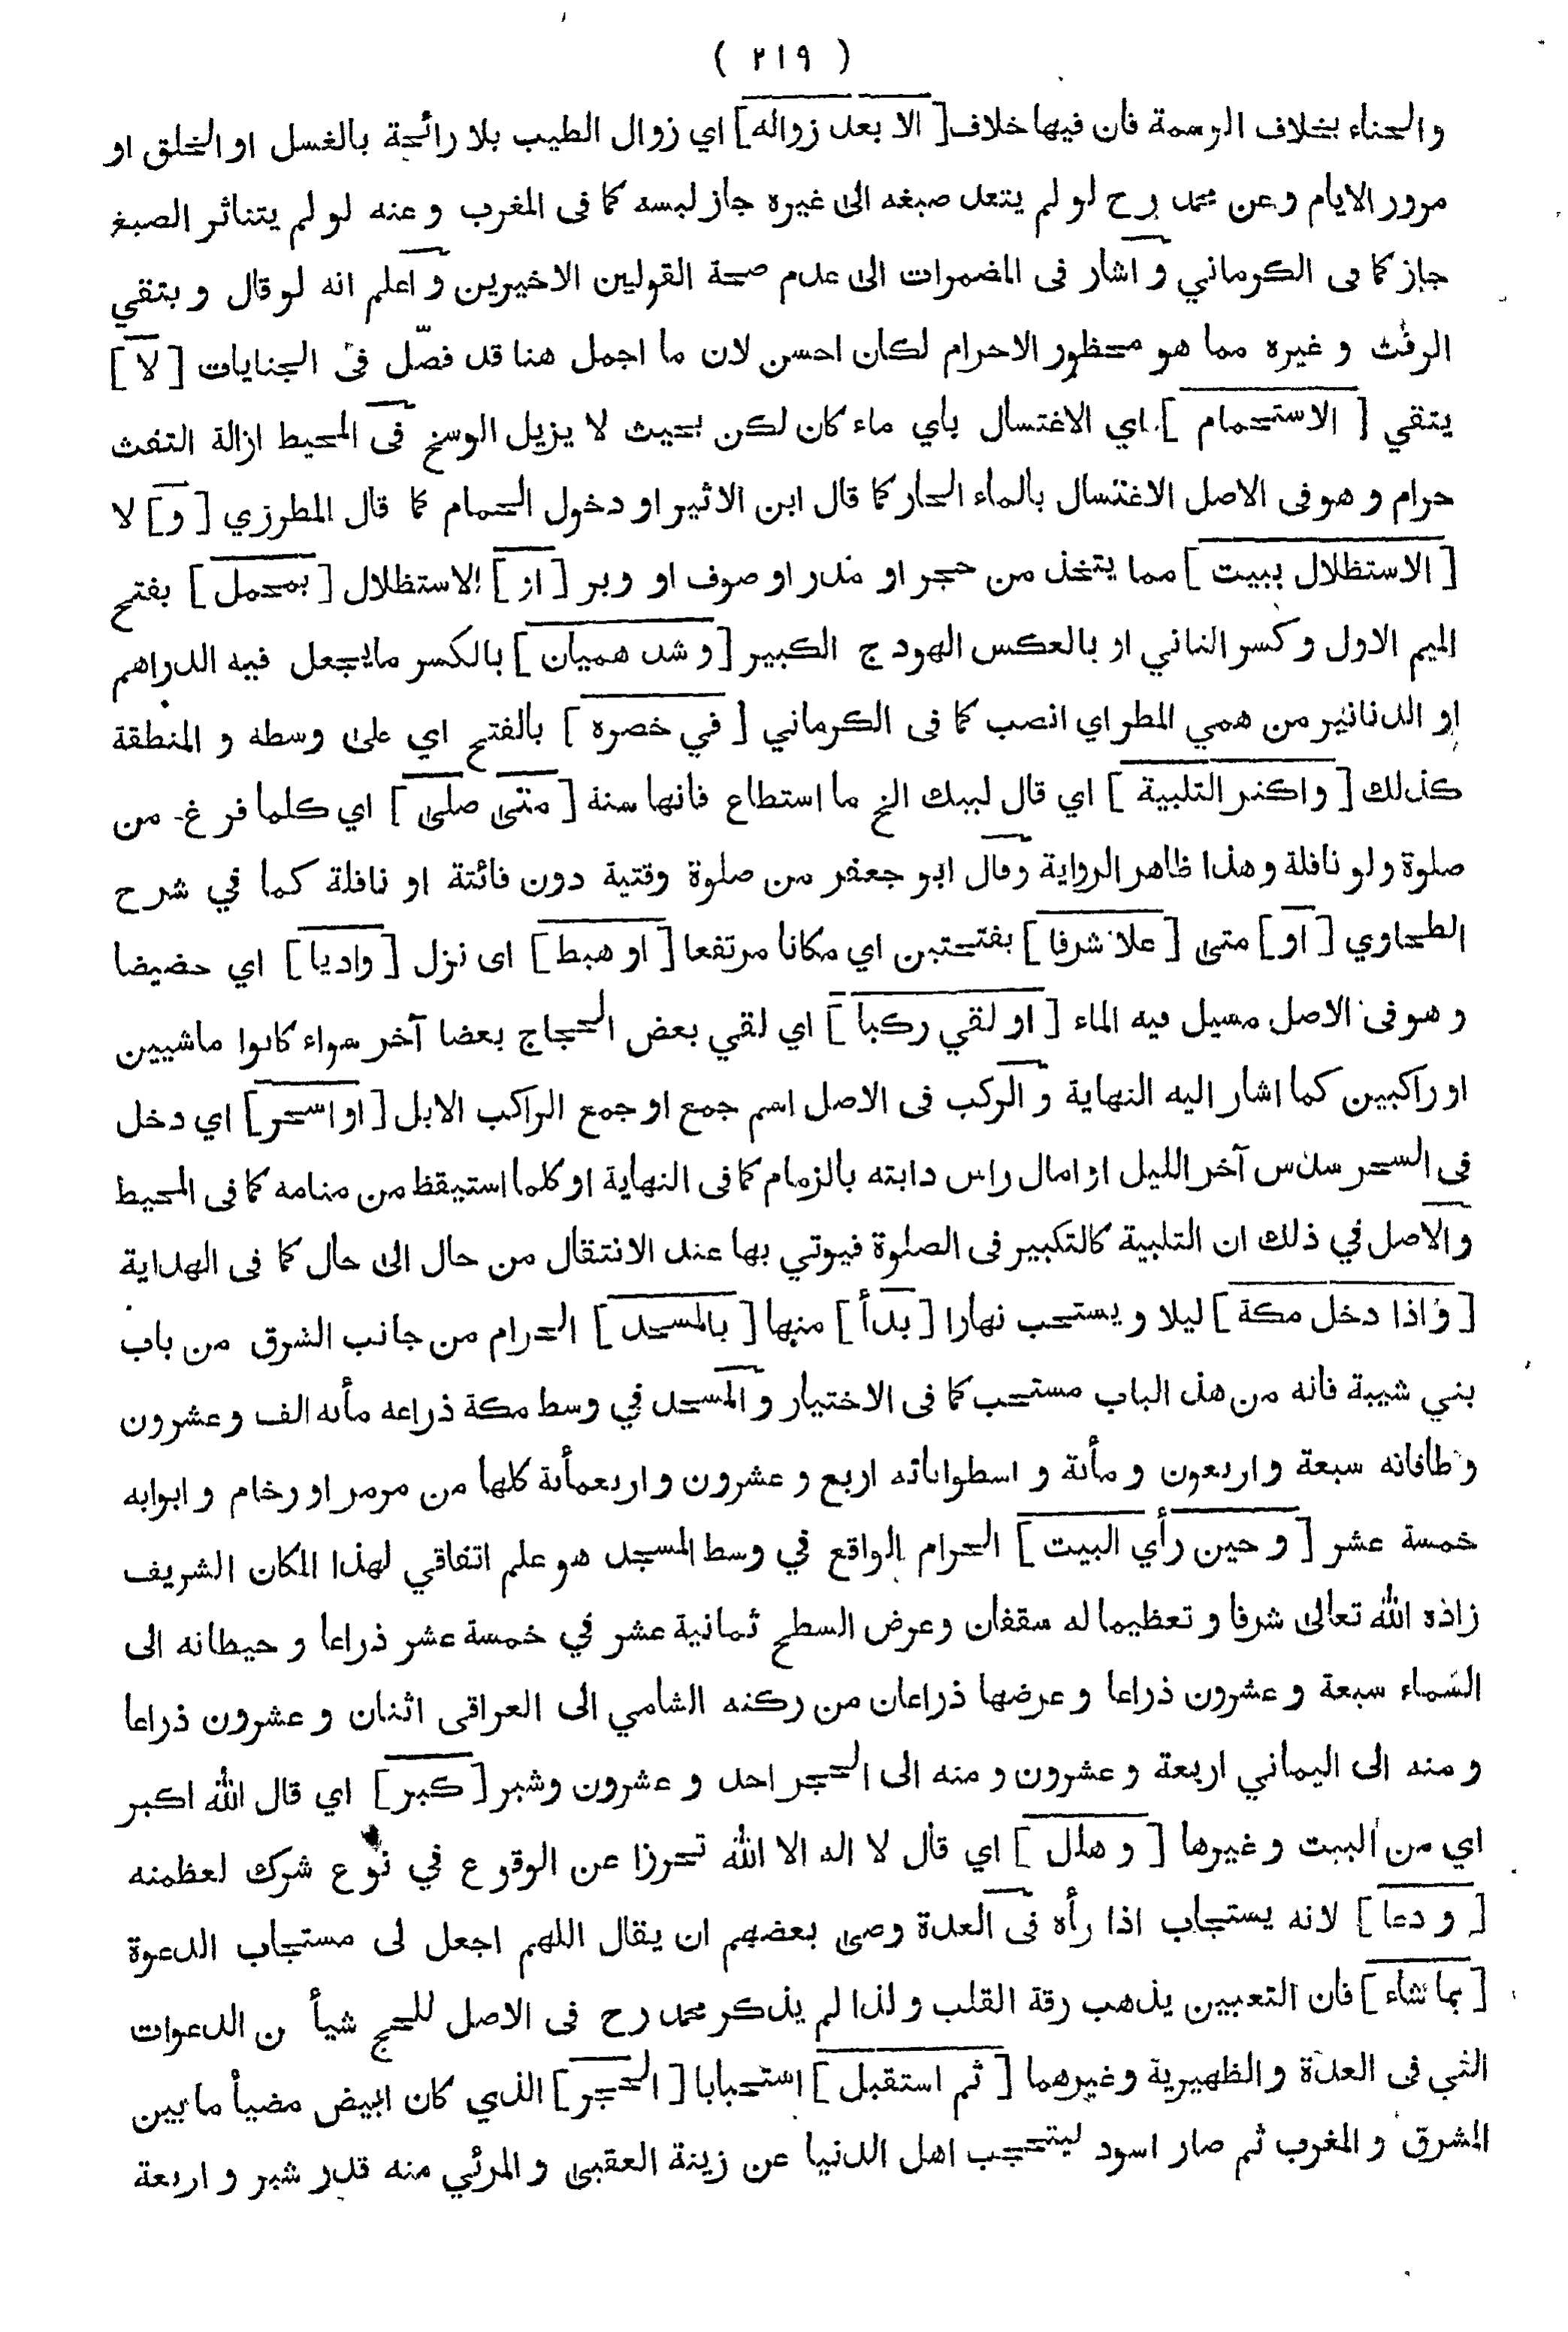 ( ٢١٩ )
والحناء بخلاف الوسمة فان فيها خلاف [ الا بعد زواله ] اي زوال الطيب بلا رائحة بالغسل او الخلق او
مرور الايام و عن محمد رح لو لم يتعد صبغه الى غيره جاز لبسه كما فى المغرب و عنه لو لم يتناثر الصبغ
جاز كما فى الكرماني و اشار فى المضمرات الى عدم صحة القولين الاخيرين و اعلم انه لو قال و يتقي
الرفث و غيره مما هو محظور الاحرام لكان احسن لان ما اجمل هنا قد فصّل فى الجنايات [ لا ]
يتقي [ الاستحمام ] اي الاغتسال باي ماء كان لكن بحيث لا يزيل الوسخ فى المحيط ازالة التفث
حرام و هو فى الاصل الاغتسال بالماء الحار كما قال ابن الاثير او دخول الحمام كما قال المطرزي [ و ] لا
[ الاستظلال ببيت ] مما يتخذ من حجر او مدر او صوف او وبر [ او ] الاستظلال [ بمحمل ] بفتح
الميم الاول و كسر الثاني او بالعكس الهودج الكبير [ و شد هميان ] بالكسر ما يجعل فيه الدراهم
او الدنانير من همي المطر اي انصب كما فى الكرماني [ في خصره ] بالفتح اي على وسطه و المنطقة
كذلك [ و اكثر التلبية ] اي قال لبيك الخ ما استطاع فانها سنة [ متى صلى ] اي كلما فرغ من
صلوة و لو نافلة و هذا ظاهر الرواية و قال ابو جعفر من صلوة وقتية دون فائتة او نافلة كما في شرح
الطحاوي [ او ] متى [ علا شرفا ] بفتحتين اي مكانا مرتفعا [ او هبط ] اى نزل [ واديا ] اي حضيضا
و هو فى الاصل مسيل فيه الماء [ او لقي ركبا ] اي لقي بعض الحجاج بعضا آخر سواء كانوا ماشيين
او راكبين كما اشار اليه النهاية و الركب فى الاصل اسم جمع او جمع الراكب الابل [ او اسحر ] اي دخل
فى السحر سدس آخر الليل او امال راس دابته بالزمام كما فى النهاية او كلما استيقظ من منامه كما فى المحيط
والاصل في ذلك ان التلبية كالتكبير فى الصلوة فيوتي بها عند الانتقال من حال الى حال كما فى الهداية
[ و اذا دخل مكة ] ليلا و يستحب نهارا [ بدأ ] منها [ بالمسجد ] الحرام من جانب الشرق من باب
بني شيبة فانه من هذ الباب مستحب كما فى الاختيار و المسجد في وسط مكة ذراعه مأنه الف و عشرون
و طاقاته سبعة و اربعون و مأنة و اسطواناته اربع و عشرون و اربعمأنة كلها من مرمر او رخام و ابوابه
خمسة عشر [ و حين رأي البيت ] الحرام الواقع في وسط المسجد هو علم اتفاقي لهذا المكان الشريف
زاده الله تعالى شرفا و تعظيما له سقفان وعرض السطح ثمانية عشر في خمسة عشر ذراعا و حيطانه الى
السماء سبعة و عشرون ذراعا و عرضها ذراعان من ركنه الشامي الى العراقى اثنان و عشرون ذراعا
و منه الى اليماني اربعة و عشرون و منه الى الحجر احد و عشرون وشبر [ كبر ] اي قال الله اكبر
اي من البيت و غيرها [ و هلل ] اي قال لا اله الا الله تحرزا عن الوقوع في نوع شرك لعظمته
[ و دعا ] لانه يستجاب اذا رأه فى العدة وصى بعضهم ان يقال اللهم اجعل لى مستجاب الدعوة
[ بما شاء ] فان التعيين يذهب رقة القلب و لذا لم يذكر محمد رح فى الاصل للحج شيأ ن الدعوات
التي فى العدة و الظهيرية وغيرهما [ ثم استقبل ] استحبابا [ الحجر ] الذي كان ابيض مضيأ ما بين
المشرق و المغرب ثم صار اسود ليتحجب اهل الدنيا عن زينة العقبى و المرئي منه قدر شبر و اربعة